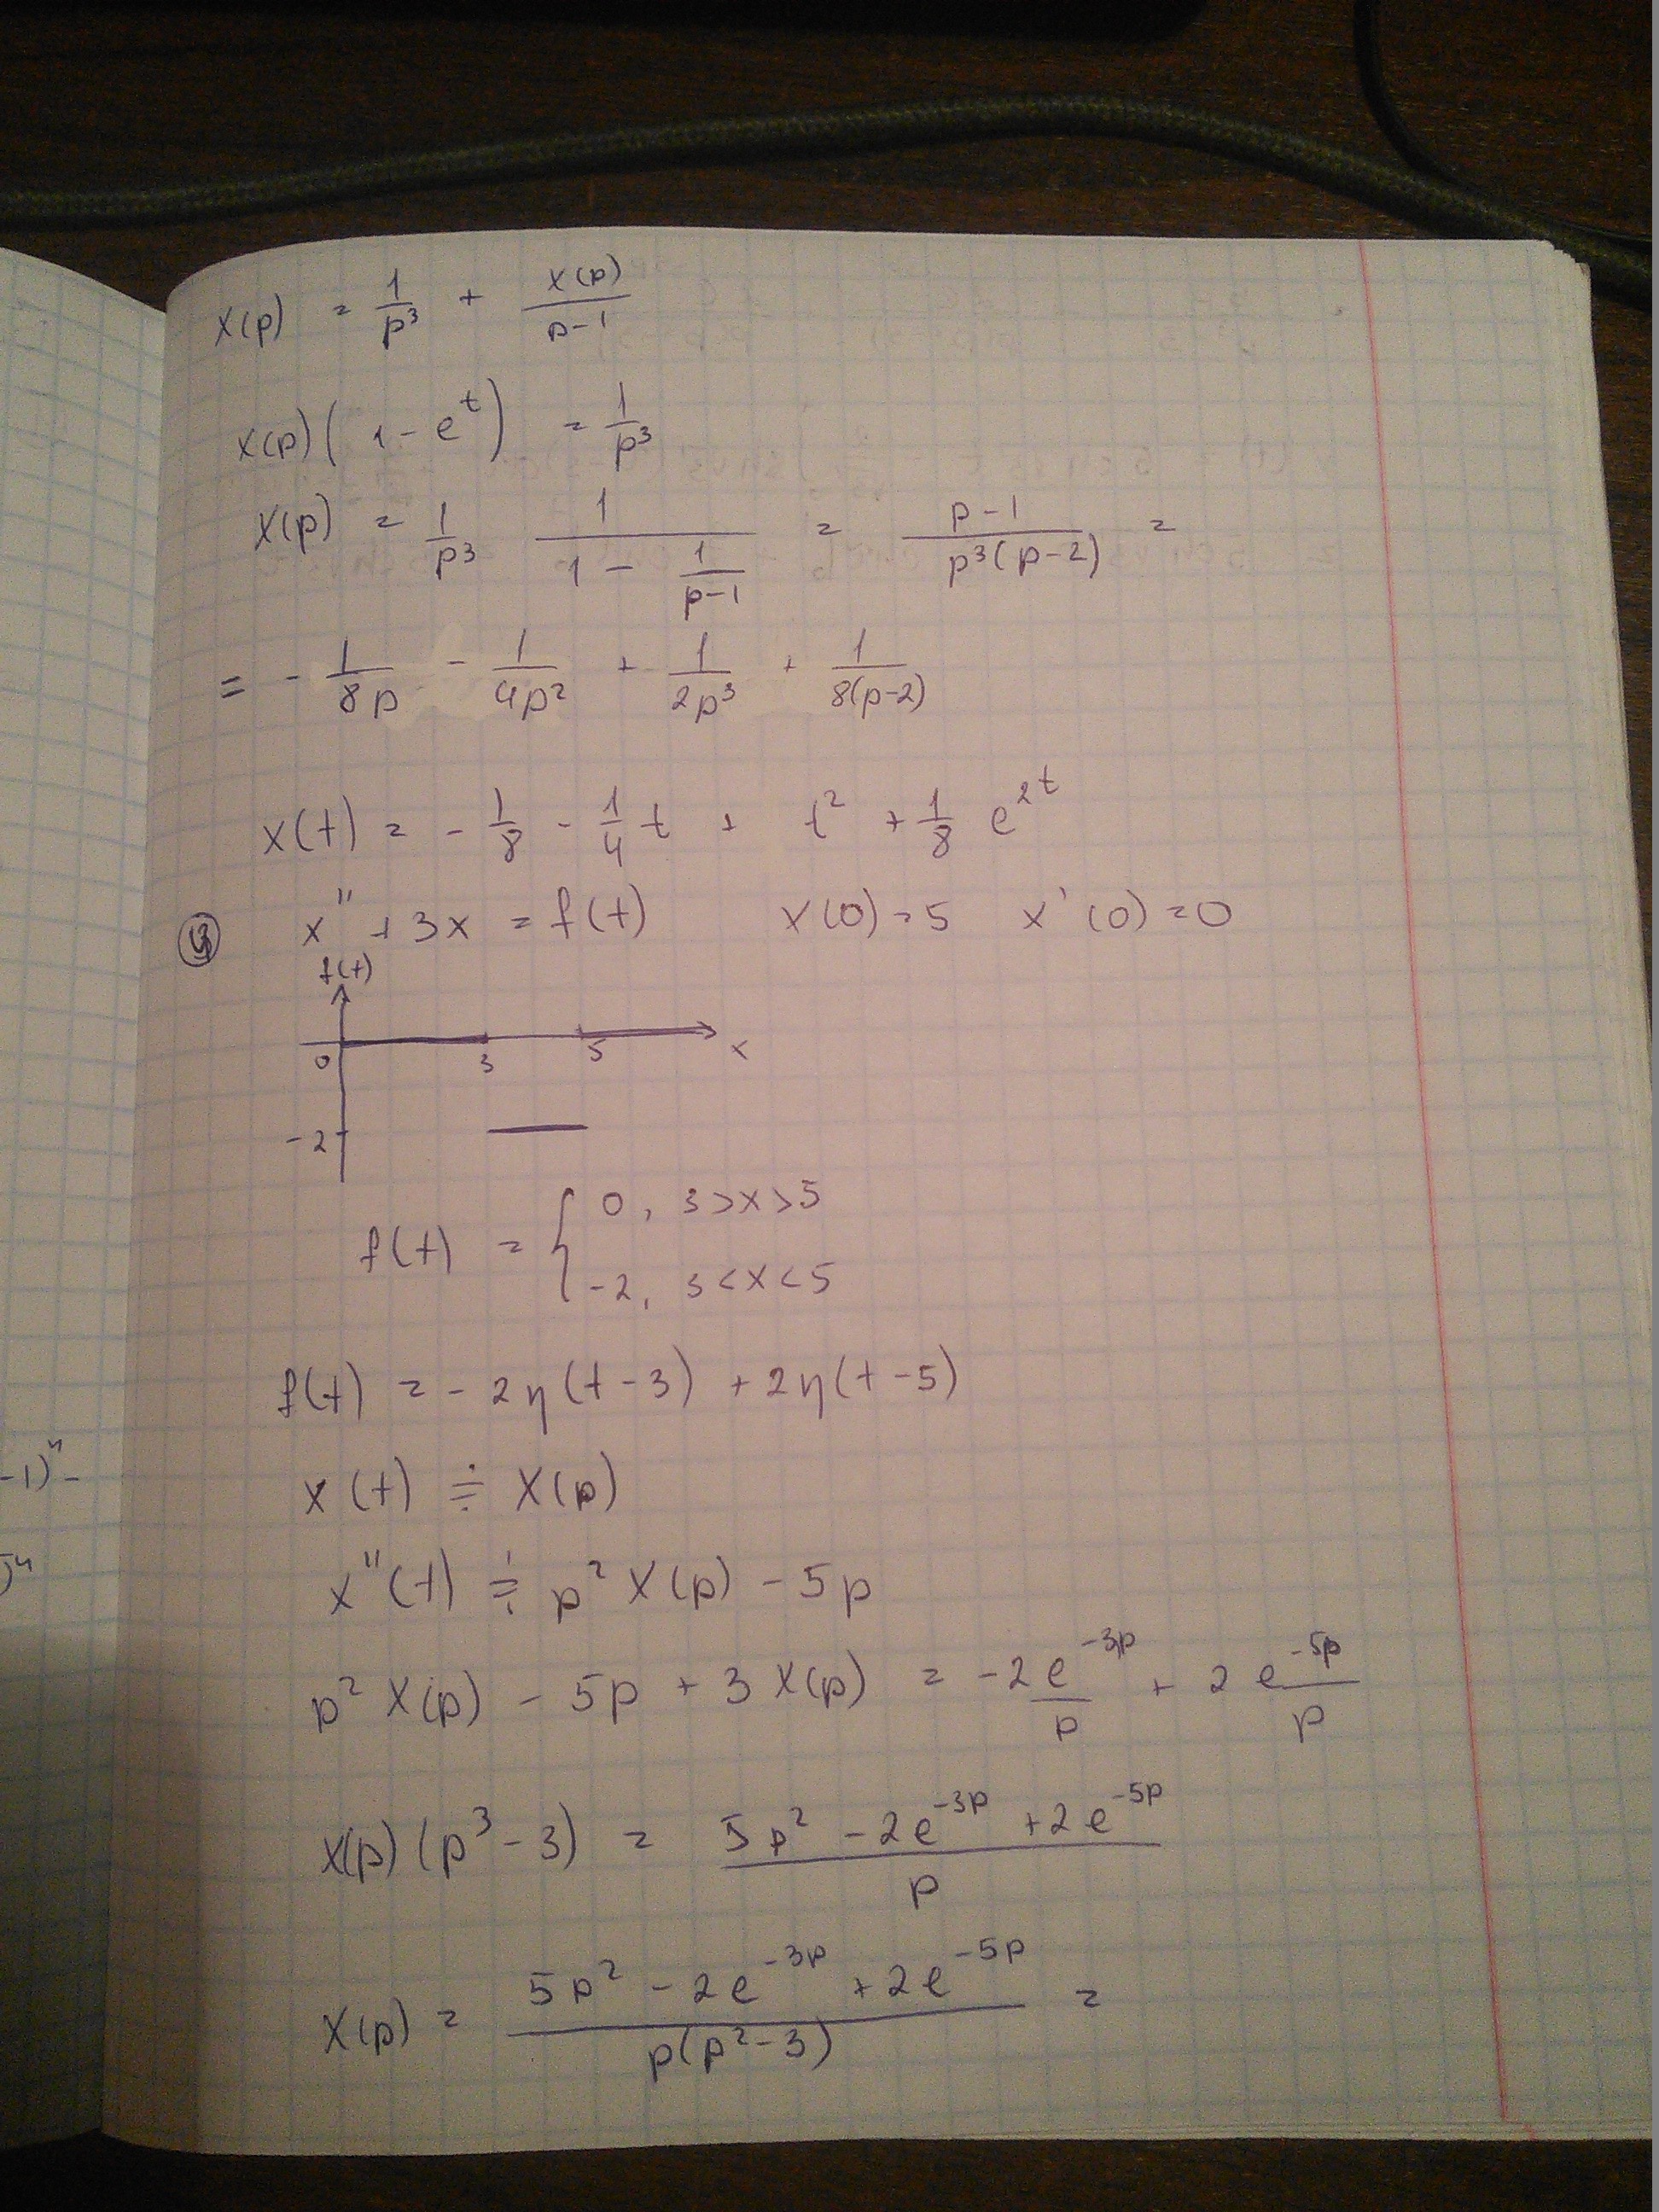 X(p) = 1/p³ + X(p)/(p-1)
X(p)(1 - e^t) = 1/p³
X(p) = 1/p³ 1/(1 - 1/(p-1)) = (p-1)/(p³(p-2)) =
= - 1/(8p) - 1/(4p²) + 1/(2p³) + 1/(8(p-2))
x(t) = - 1/8 - 1/4 t + t² + 1/8 e^(2t)
x'' + 3x = f(t) x(0) = 5 x'(0) = 0
f(t)
0 3 5 x
-2
f(t) = { 0, 3>x>5
-2, 3<x<5
f(t) = - 2η(t-3) + 2η(t-5)
x(t) ≑ X(p)
x''(t) ≑ p² X(p) - 5p
p² X(p) - 5p + 3X(p) = -2 e^(-3p)/p + 2 e^(-5p)/p
X(p)(p³ - 3) = (5p² - 2e^(-3p) + 2e^(-5p))/p
X(p) = (5p² - 2e^(-3p) + 2e^(-5p))/(p(p² - 3)) =